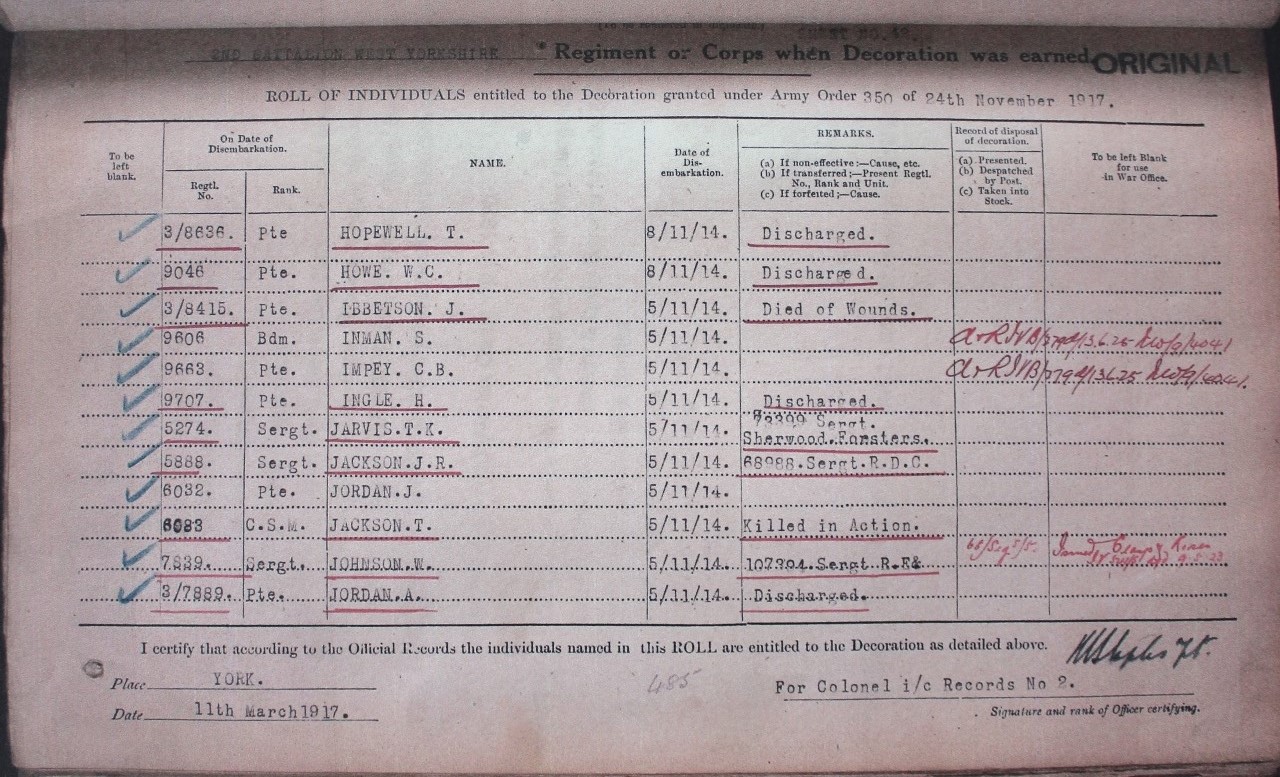 2ND BATTALION WEST YORKSHIRE * Regiment or Corps when Decoration was earned ORIGINAL
ROLL OF INDIVIDUALS entitled to the Decoration granted under Army Order 350 of 24th November 1917.
To be left blank.
On Date of Disembarkation.
Regtl. No.
Rank.
NAME.
Date of Dis-embarkation.
REMARKS.
(a) If non-effective:—Cause, etc.
(b) If transferred:—Present Regtl. No., Rank and Unit.
(c) If forfeited:—Cause.
Record of disposal of decoration.
(a) Presented.
(b) Despatched by Post.
(c) Taken into Stock.
To be left Blank for use in War Office.
3/8636. Pte HOPEWELL. T. 8/11/14. Discharged.
9046 Pte. HOWE. W.C. 8/11/14. Discharged.
3/8415. Pte. IBBETSON. J. 5/11/14. Died of Wounds.
9606 Bdm. INMAN. S. 5/11/14.
9663. Pte. IMPEY. C.B. 5/11/14.
9707. Pte. INGLE. H. 5/11/14. Discharged.
5274. Sergt. JARVIS.T.K. 5/11/14. Sergt.
Sherwood.Forsters.
5888. Sergt. JACKSON.J.R. 5/11/14. 68988.Sergt.R.D.C.
6032. Pte. JORDAN.J. 5/11/14.
6083 C.S.M. JACKSON.T. 5/11/14. Killed in Action.
7839. Sergt. JOHNSON.W. 5/11/14. 107394.Sergt.R.E&
3/7889. Pte. JORDAN.A. 5/11/14. Discharged.
I certify that according to the Official Records the individuals named in this ROLL are entitled to the Decoration as detailed above.
Place YORK.
485
For Colonel i/c Records No 2.
Date 11th March1917.
Signature and rank of Officer certifying.